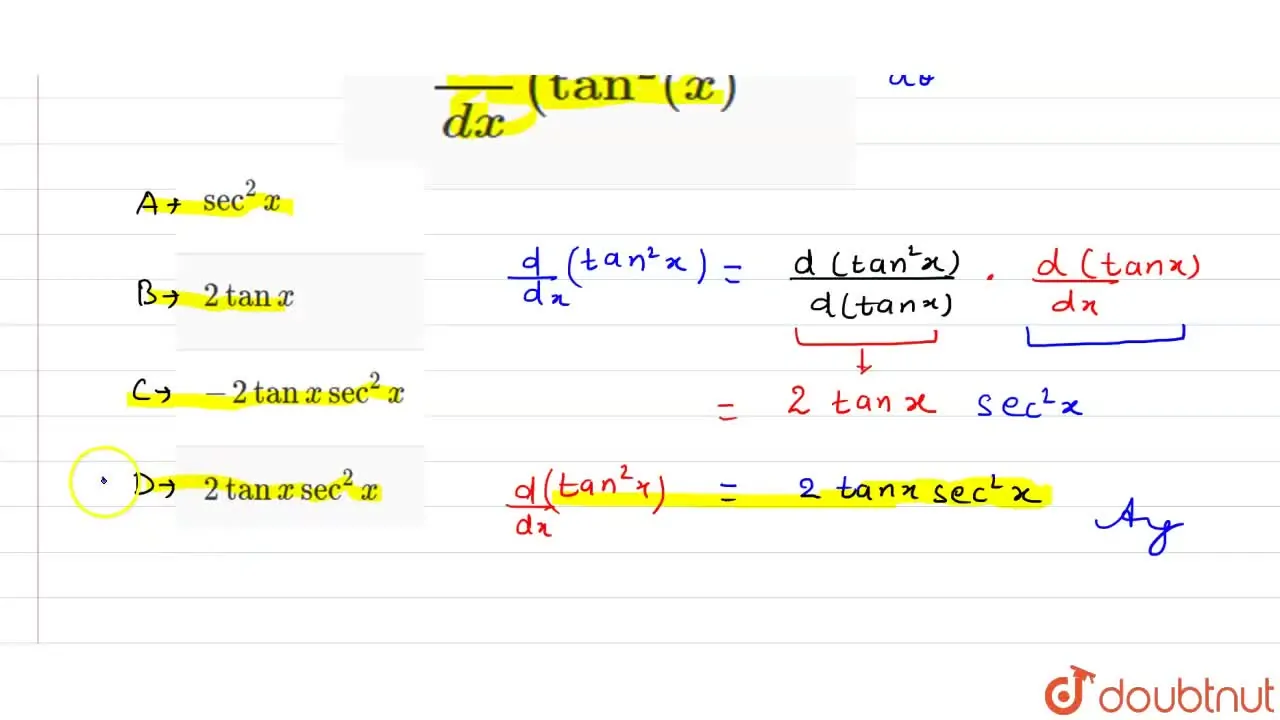 dx (tan²(x)
A→ sec² x
B→ 2 tan x
C→ −2 tan x sec² x
D→ 2 tan x sec² x
d/dx (tan²x) = d(tan²x)/d(tanx) · d(tanx)/dx
= 2 tanx sec²x
d/dx (tan²x) = 2 tanx sec²x
doubtnut